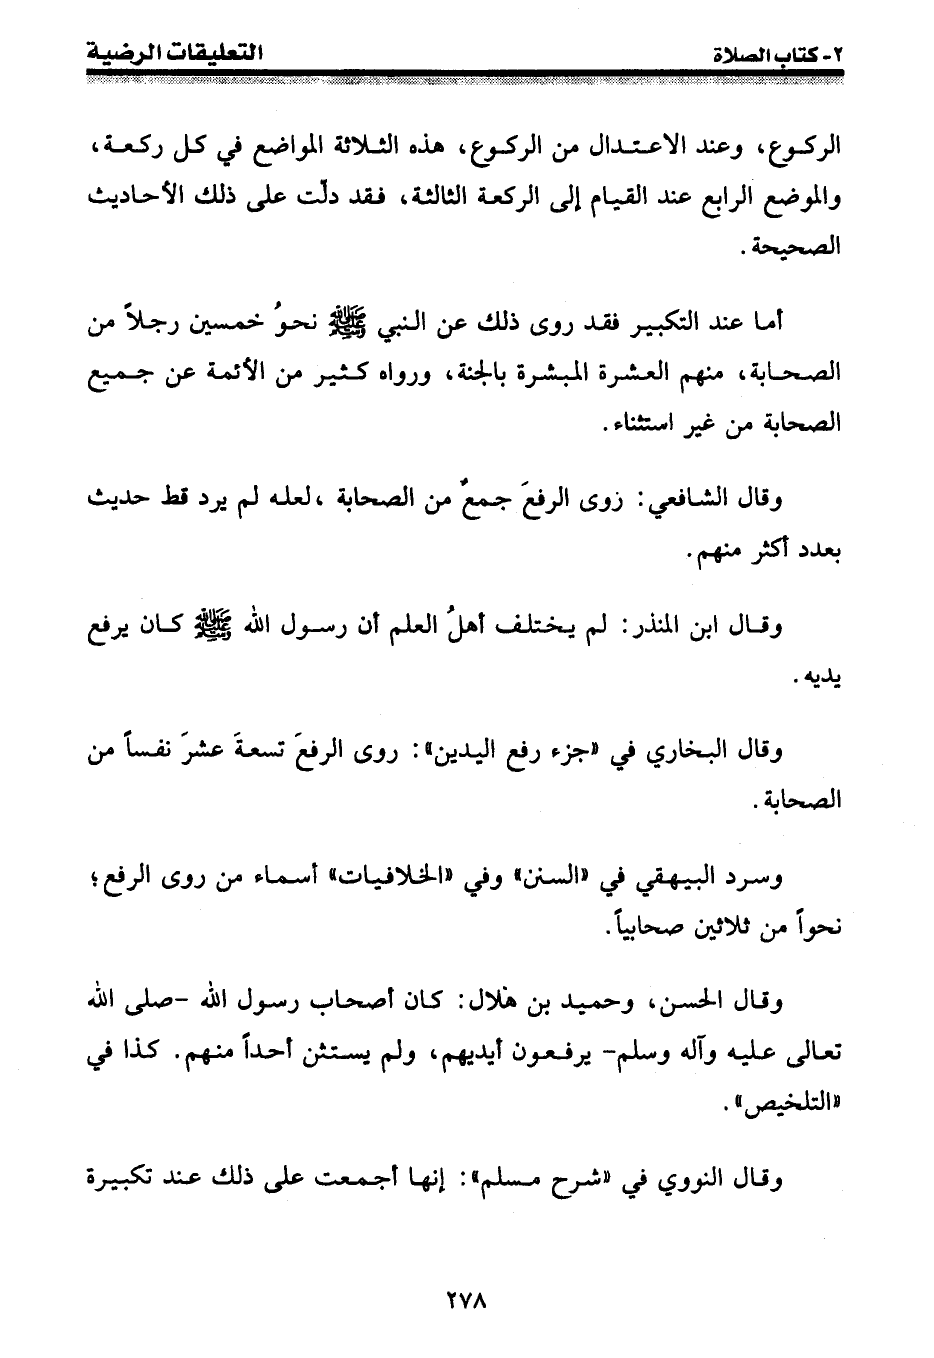 ٢- كتاب الصلاة
التعليقات الرضية
الركوع، وعند الاعتدال من الركوع، هذه الثلاثة المواضع في كل ركعة،
والموضع الرابع عند القيام إلى الركعة الثالثة، فقد دلّت على ذلك الأحاديث
الصحيحة .
أما عند التكبير فقد روى ذلك عن النبي ﷺ نحوُ خمسين رجلاً من
الصحابة، منهم العشرة المبشرة بالجنة، ورواه كثير من الأئمة عن جميع
الصحابة من غير استثناء.
وقال الشافعي: روى الرفعَ جمعٌ من الصحابة ،لعله لم يرد قط حديث
بعدد أكثر منهم.
وقال ابن المنذر: لم يختلف أهلُ العلم أن رسول الله ﷺ كان يرفع
يديه .
وقال البخاري في «جزء رفع اليدين»: روى الرفعَ تسعةَ عشرَ نفساً من
الصحابة .
وسرد البيهقي في «السنن» وفي «الخلافيات» أسماء من روى الرفع؛
نحواً من ثلاثين صحابياً.
وقال الحسن، وحميد بن هلال: كان أصحاب رسول الله -صلى الله
تعالى عليه وآله وسلم- يرفعون أيديهم، ولم يستثن أحداً منهم. كذا في
«التلخيص» .
وقال النووي في «شرح مسلم»: إنها أجمعت على ذلك عند تكبيرة
٢٧٨